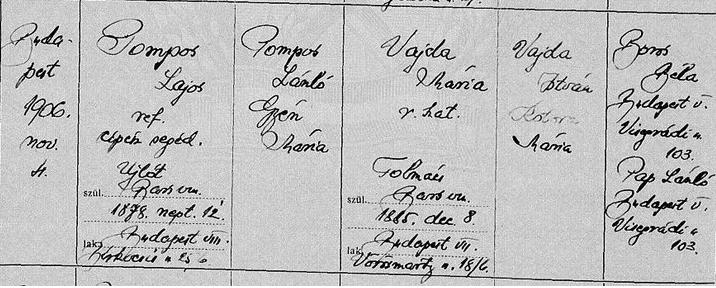 Buda-
pest
1906.
nov.
4.
Pompos
Lajos
ref.
cipész segéd.
Ujlót
szül. Bars vm.
1878. szept. 12.
laka Budapest VIII.
Pompos
László
Gyén
Mária
Vajda
Mária
r. kat.
Tolmács
szül. Bars vm.
1885. dec. 8
lak Budapest VII.
Vörösmarty u. 18/b.
Vajda
István
Mária
Boros
Béla
Budapest V.
Visegrádi u.
103.
Pap László
Budapest V.
Visegrádi u.
103.